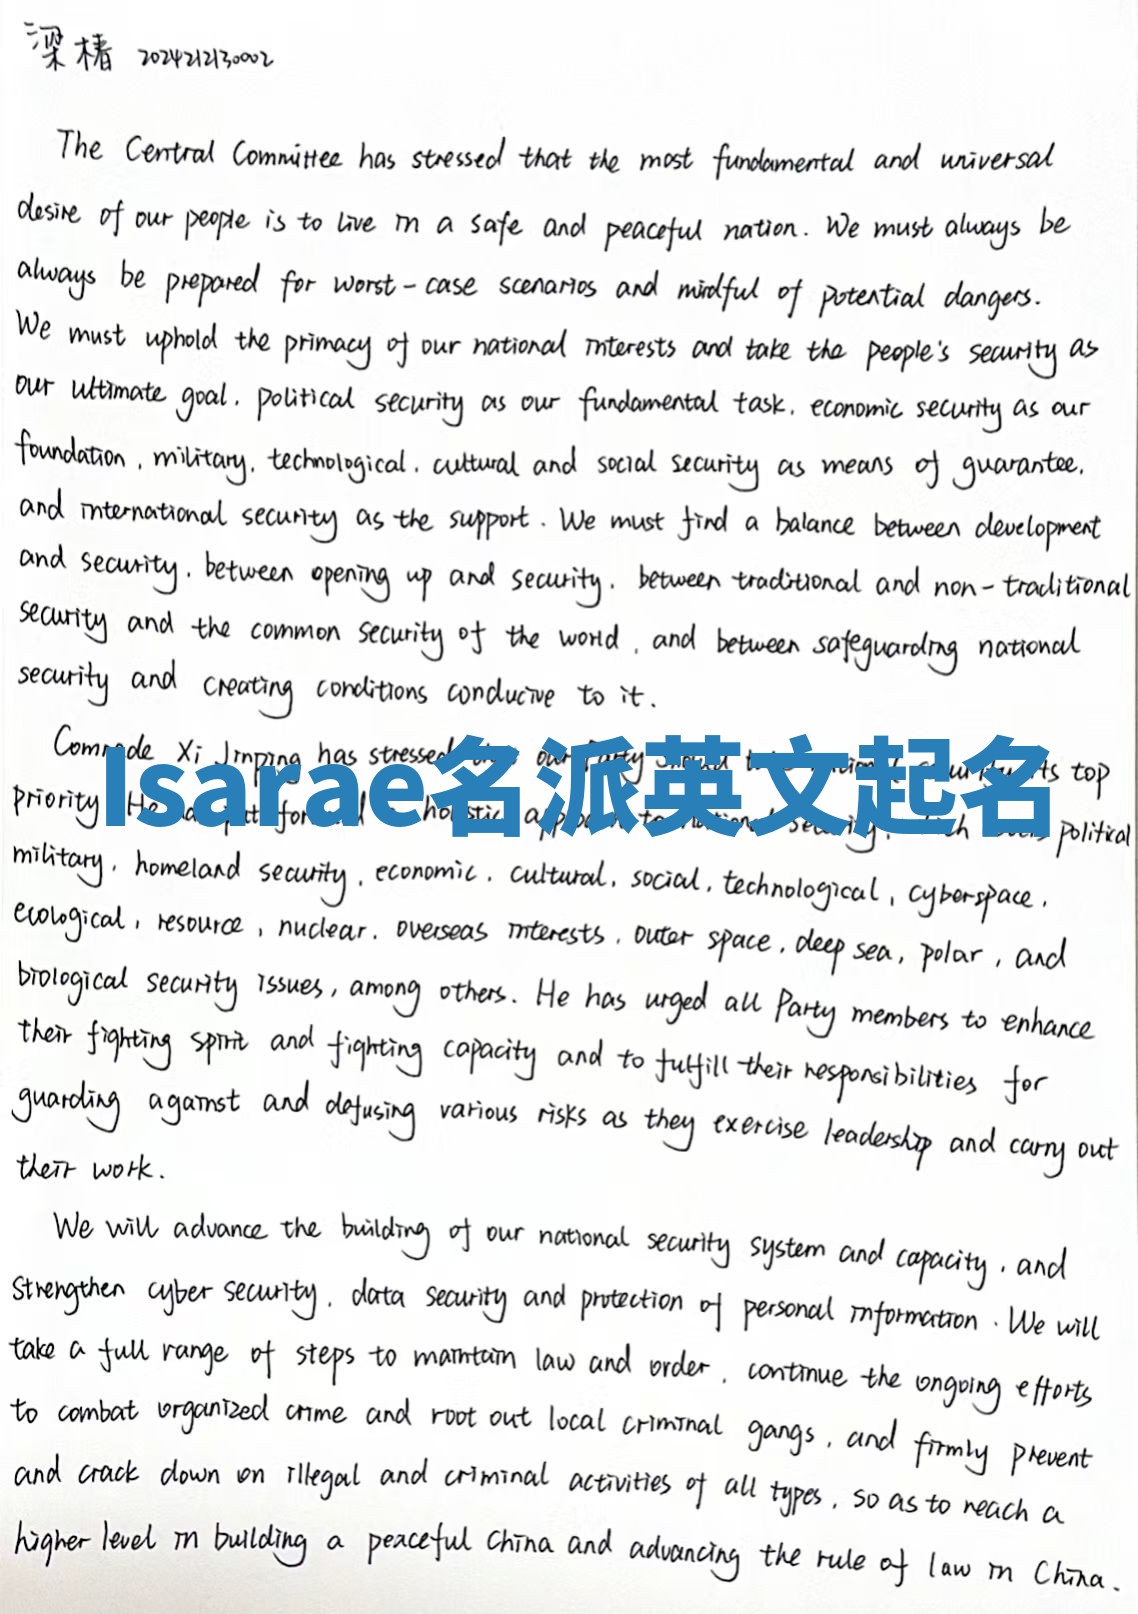 梁椿 2024212130002
The Central Committee has stressed that the most fundamental and universal
desire of our people is to live in a safe and peaceful nation. We must always be
always be prepared for worst-case scenarios and mindful of potential dangers.
We must uphold the primacy of our national interests and take the people's security as
our ultimate goal, political security as our fundamental task, economic security as our
foundation, military, technological, cultural and social security as means of guarantee,
and international security as the support. We must find a balance between development
and security, between opening up and security, between traditional and non-traditional
security and the common security of the world, and between safeguarding national
security and creating conditions conducive to it.
Comrade Xi Jinping has stressed our Party top
Isarae名派英文起名
priority He political
military, homeland security, economic, cultural, social, technological, cyberspace,
ecological, resource, nuclear, overseas interests, outer space, deep sea, polar, and
biological security issues, among others. He has urged all Party members to enhance
their fighting spirit and fighting capacity and to fulfill their responsibilities for
guarding against and defusing various risks as they exercise leadership and carry out
their work.
We will advance the building of our national security system and capacity, and
strengthen cyber security, data security and protection of personal information. We will
take a full range of steps to maintain law and order, continue the ongoing efforts
to combat organized crime and root out local criminal gangs, and firmly prevent
and crack down on illegal and criminal activities of all types, so as to reach a
higher level in building a peaceful China and advancing the rule of law in China.